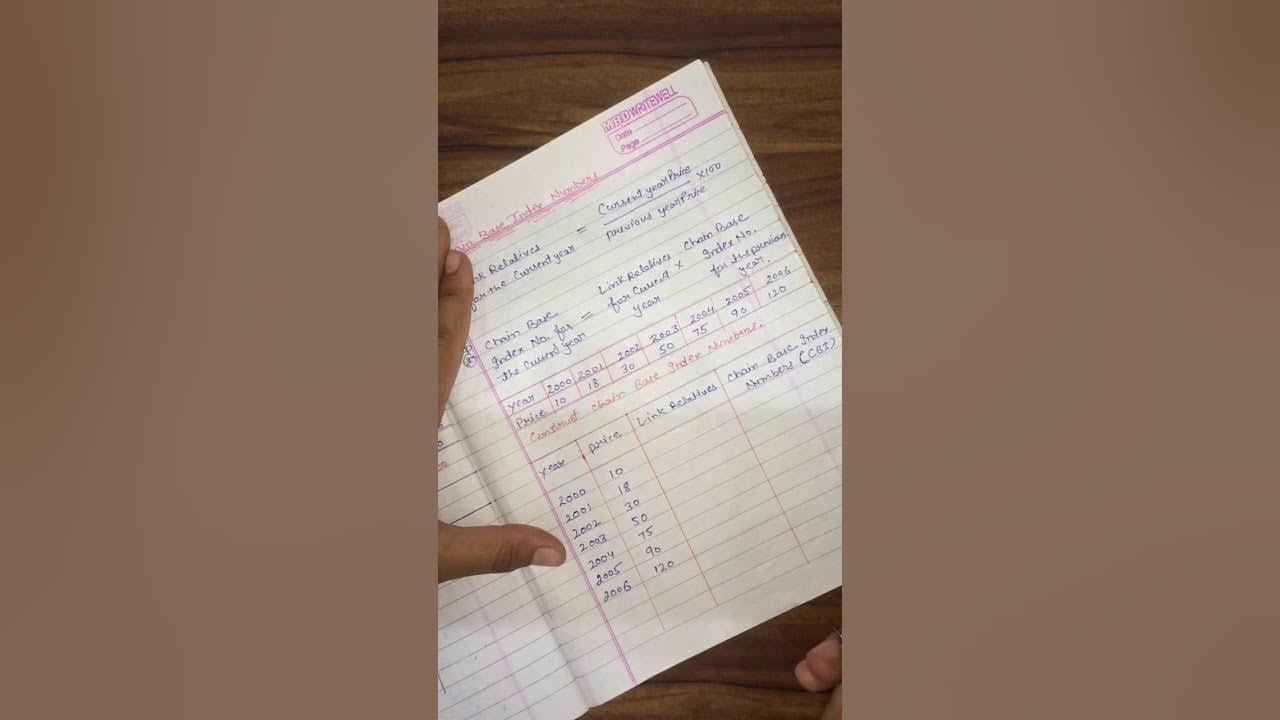 MBD WRITEWELL
Date
Page
Base Index Numbers
Relatives for the Current year = Current year Price / previous year Price ×100
Chain Base Index No. for the Current year = Link Relatives for Current year × Chain Base Index No. for the previous year.
Year 2000 2001 2002 2003 2004 2005 2006
Price 10 18 30 50 75 90 120
Construct Chain Base Index Numbers.
Year Price Link Relatives Chain Base Index Numbers (CBI)
2000 10
2001 18
2002 30
2003 50
2004 75
2005 90
2006 120